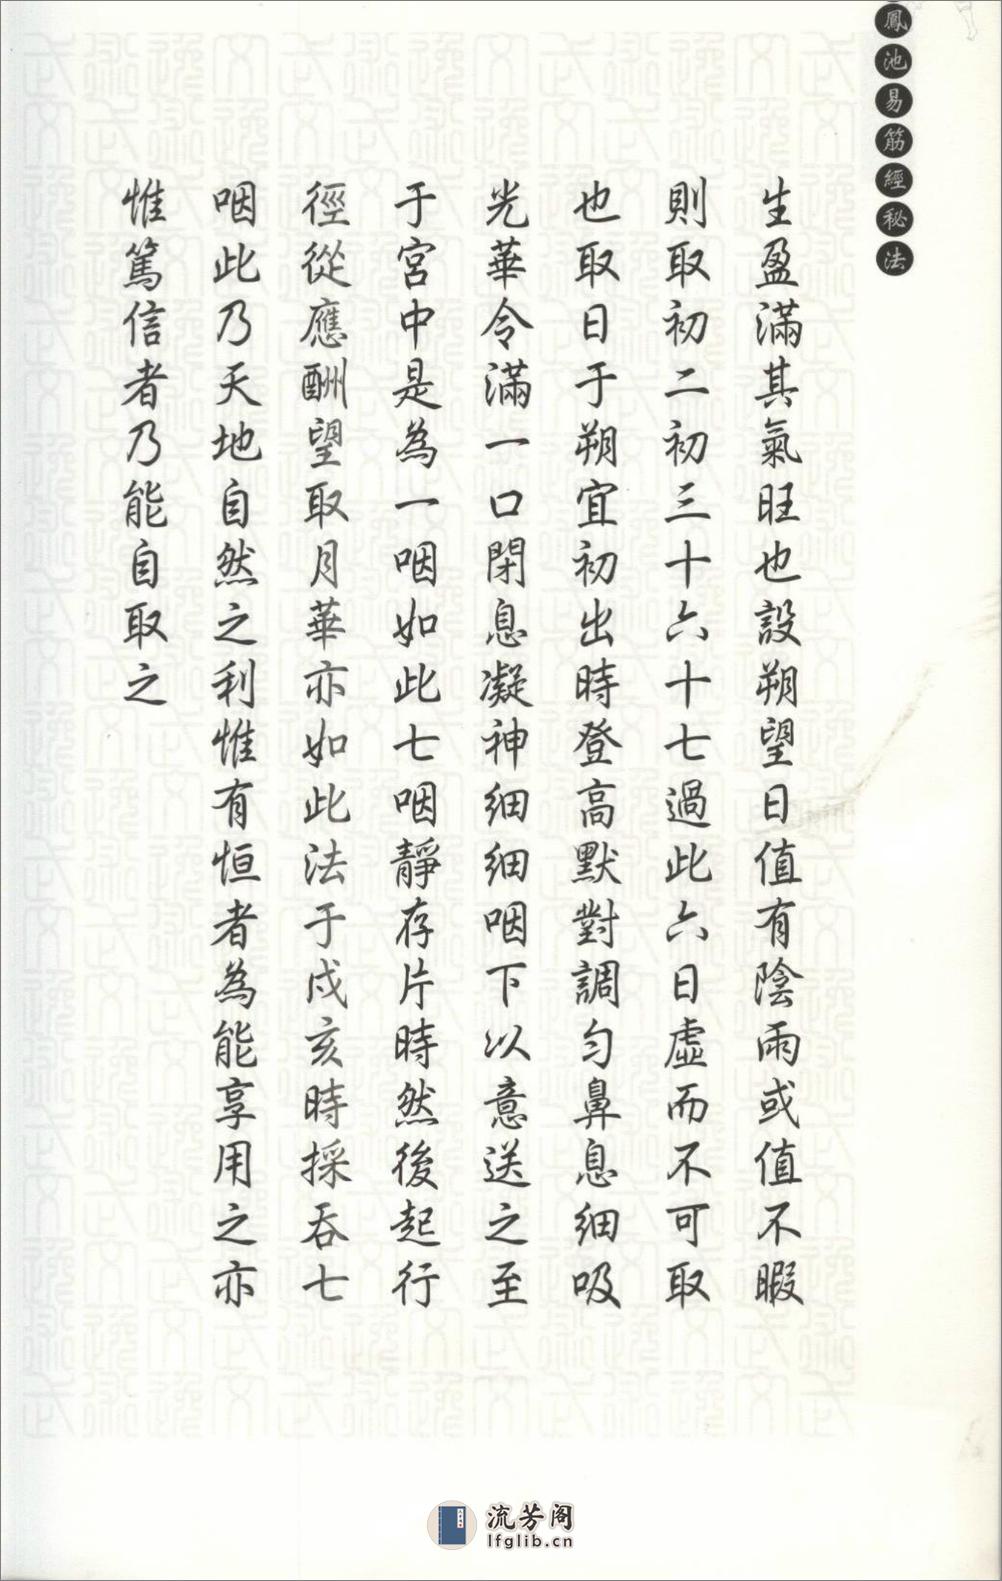 鳳池易筋經秘法
生盈滿其氣旺也設朔望日值有陰雨或值不暇
則取初二初三十六十七過此六日虛而不可取
也取日于朔宜初出時登高默對調勻鼻息細吸
光華令滿一口閉息凝神細細咽下以意送之至
于宮中是為一咽如此七咽靜存片時然後起行
徑從應酬望取月華亦如此法于戌亥時採吞七
咽此乃天地自然之利惟有恒者為能享用之亦
惟篤信者乃能自取之
流芳阁
lfglib.cn